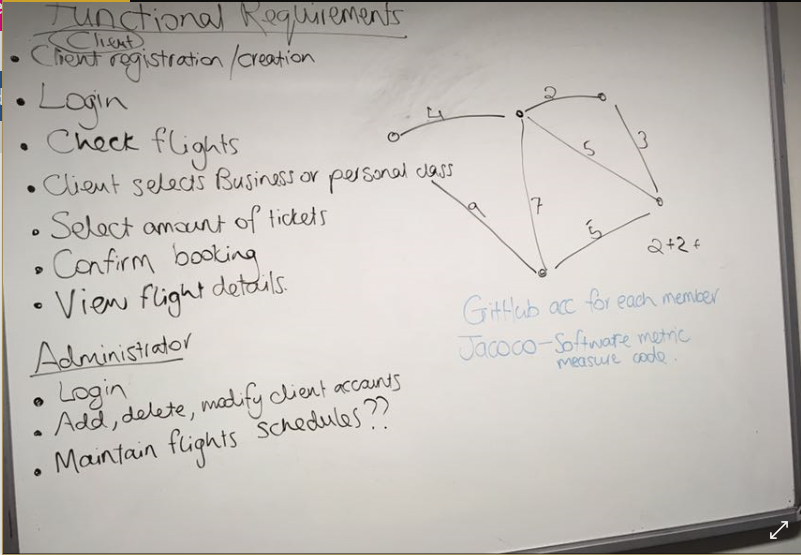 Functional Requirements
Client
• Client registration/creation
• Login
• Check flights
• Client selects Business or personal class
• Select amount of tickets
• Confirm booking
• View flight details.
Administrator
• Login
• Add, delete, modify client accounts
• Maintain flights schedules??
4
2
5
3
9
7
5
2+2+
GitHub acc for each member
Jacoco-Software metric
measure code.